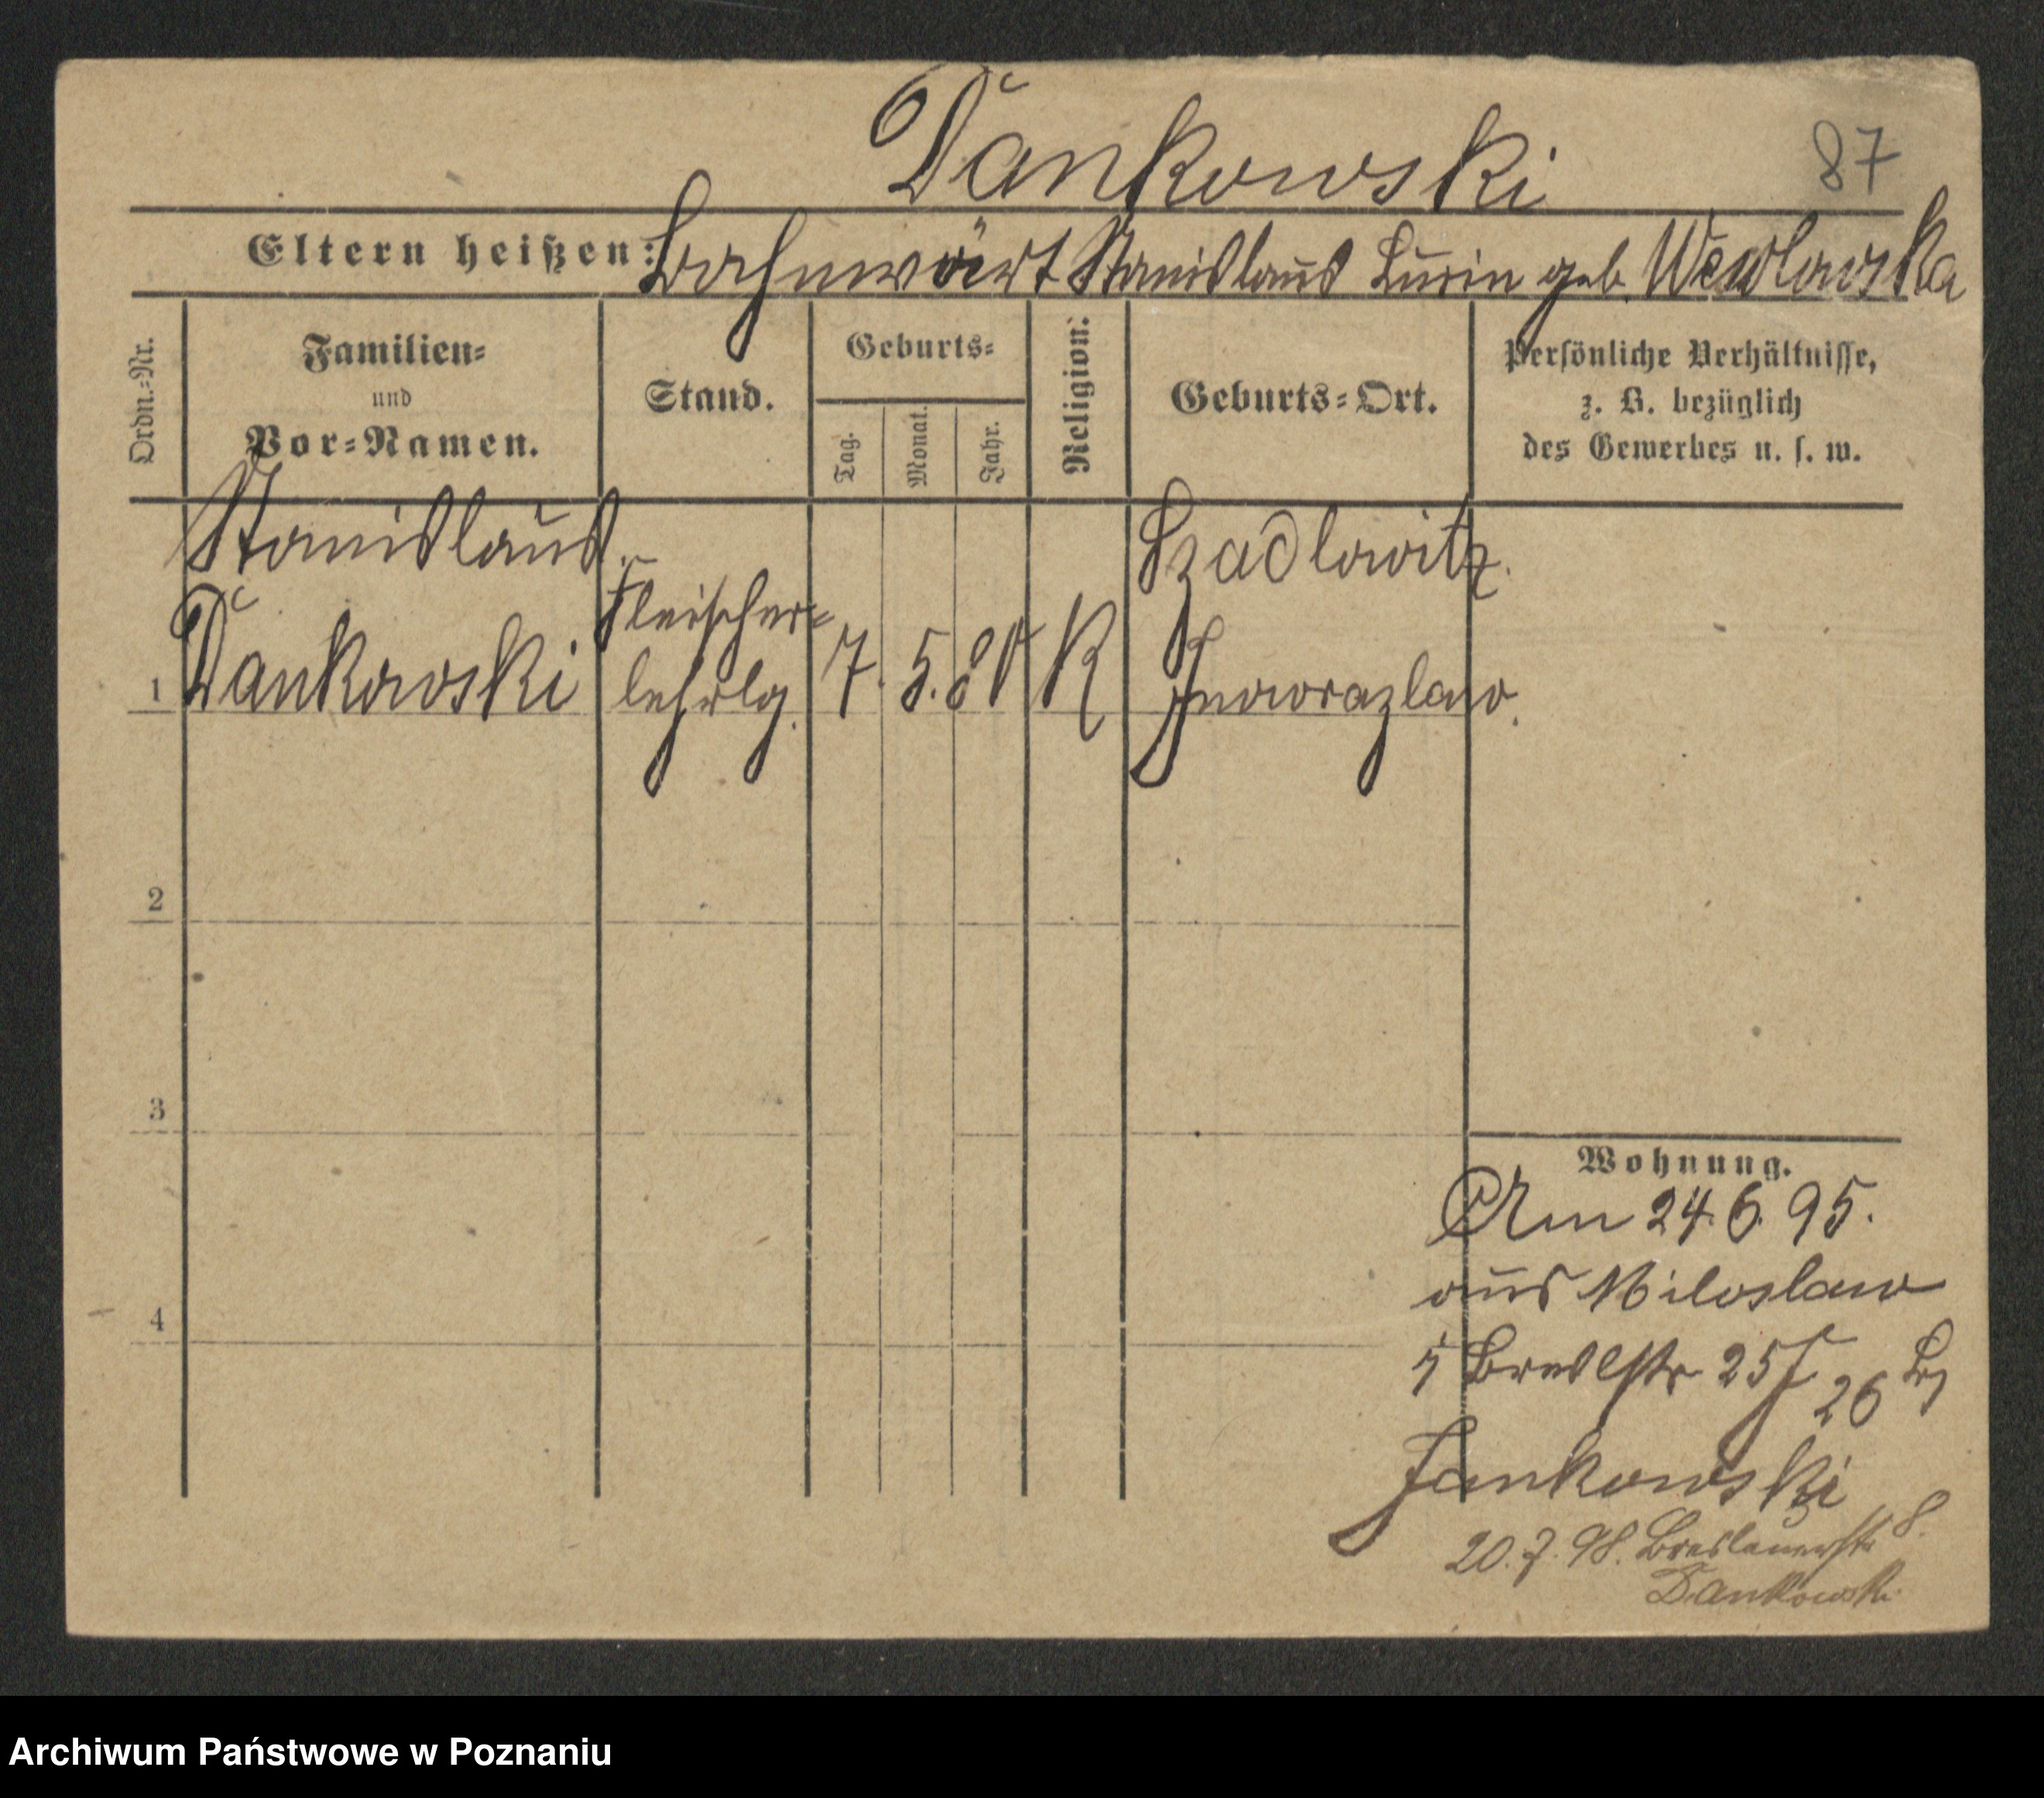 Dankowski
87
Eltern heißen: Bahnwärt Stanislaus Luzin geb. Weslowska
Ordn.=Nr.
Familien=
und
Vor=Namen.
Stand.
Geburts=
Tag.
Monat.
Jahr.
Religion:
Geburts=Ort.
Persönliche Verhältnisse,
z. B. bezüglich
des Gewerbes u. s. w.
Stanislaus
Dankowski
Fleischer=
lehrlg.
1
7. 5. 80
K
Szadlowitz.
Inowrazlaw.
2
3
4
Wohnung.
Am 24. 6. 95.
aus Miloslaw
Breslstr 25 26
Jankowski
20. 7. 98. Breslauerstr 8.
Dankowski
Archiwum Państwowe w Poznaniu